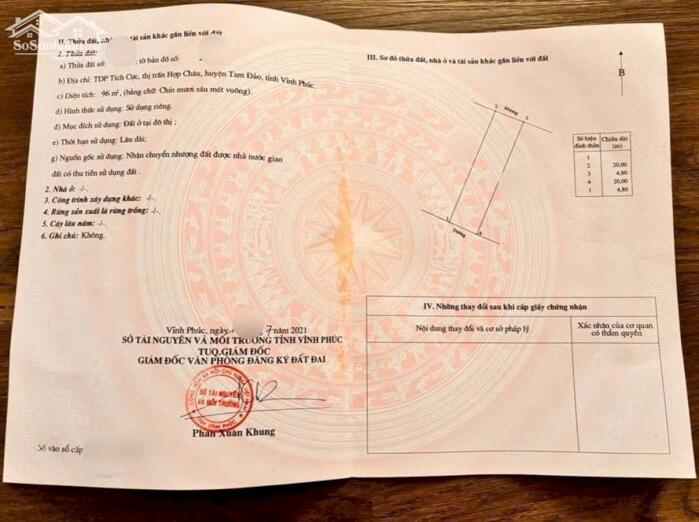 SoSanhNha
II. Thửa đất, nhà ở và tài sản khác gắn liền với đất
1. Thửa đất:
a) Thửa đất số: , tờ bản đồ số:
b) Địa chỉ: TDP Tích Cực, thị trấn Hợp Châu, huyện Tam Đảo, tỉnh Vĩnh Phúc.
c) Diện tích: 96 m², (bằng chữ: Chín mươi sáu mét vuông).
d) Hình thức sử dụng: Sử dụng riêng.
đ) Mục đích sử dụng: Đất ở tại đô thị ;
e) Thời hạn sử dụng: Lâu dài;
g) Nguồn gốc sử dụng: Nhận chuyển nhượng đất được nhà nước giao
đất có thu tiền sử dụng đất .
2. Nhà ở: -/-.
3. Công trình xây dựng khác: -/-.
4. Rừng sản xuất là rừng trồng: -/-.
5. Cây lâu năm: -/-.
6. Ghi chú: Không.
Vĩnh Phúc, ngày 7 năm 2021
SỞ TÀI NGUYÊN VÀ MÔI TRƯỜNG TỈNH VĨNH PHÚC
TUQ.GIÁM ĐỐC
GIÁM ĐỐC VĂN PHÒNG ĐĂNG KÝ ĐẤT ĐAI
SỞ TÀI NGUYÊN
VÀ MÔI TRƯỜNG
Phan Xuân Khung
Số vào sổ cấp
III. Sơ đồ thửa đất, nhà ở và tài sản khác gắn liền với đất
B
2 Mương 3
1 Đường 4
Số hiệu đỉnh thửa Chiều dài (m)
1
2 20,00
3 4,80
4 20,00
1 4,80
IV. Những thay đổi sau khi cấp giấy chứng nhận
Nội dung thay đổi và cơ sở pháp lý
Xác nhận của cơ quan
có thẩm quyền